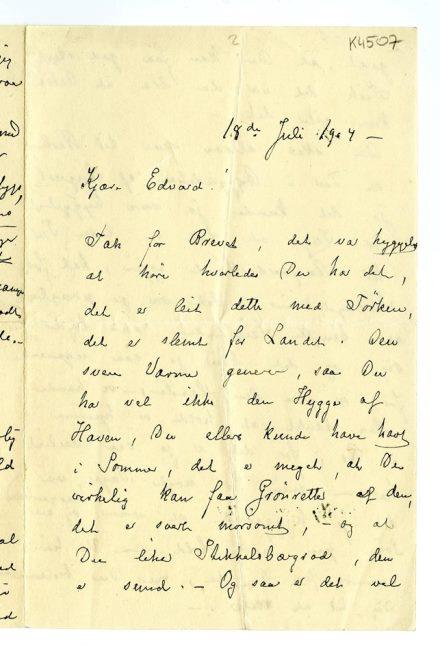 2
K4507
18de Juli 1904 –
Kjære Edvard!
Tak for Brevet, det var hyggeligt
at høre hvorledes Du har det,
det er leit dette med Tørken,
det er slemt for Landet. Den
svære Varme generer, saa Du
har vel ikke den Hygge af
Haven, Du ellers kunde have havt
i Sommer, det er meget, at Du
virkelig kan faa Grønretter af den,
det er svært morsomt, – og at
Du liker Stikkelsbærgrød, den
er sund. – Og saa er det vel